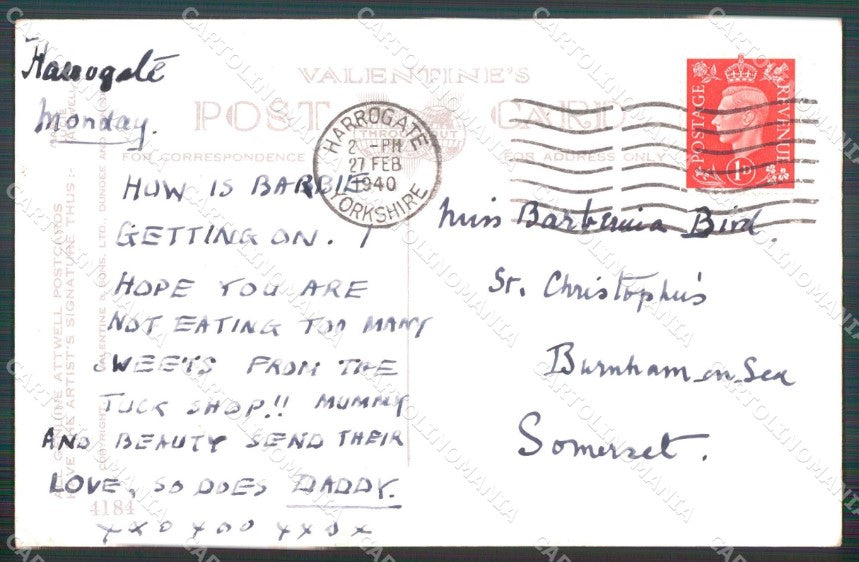 Harrogate
Monday.
VALENTINE'S
POST CARD
FOR CORRESPONDENCE
FOR ADDRESS ONLY
HARROGATE
2 -PM
27 FEB
1940
YORKSHIRE
POSTAGE
REVENUE
1D
HOW IS BARBIE
GETTING ON. I
HOPE YOU ARE
NOT EATING TOO MANY
SWEETS FROM THE
TUCK SHOP!! MUMMY
AND BEAUTY SEND THEIR
LOVE, SO DOES DADDY.
x x o x o o x x o x
Miss Bird.
St. Christopher's
Burnham-on-Sea
Somerset.
ATTWELL POSTCARDS
ARTIST'S SIGNATURE THUS :-
VALENTINE & SONS, LTD., DUNDEE AND
4184
CARTOLINOMANIA